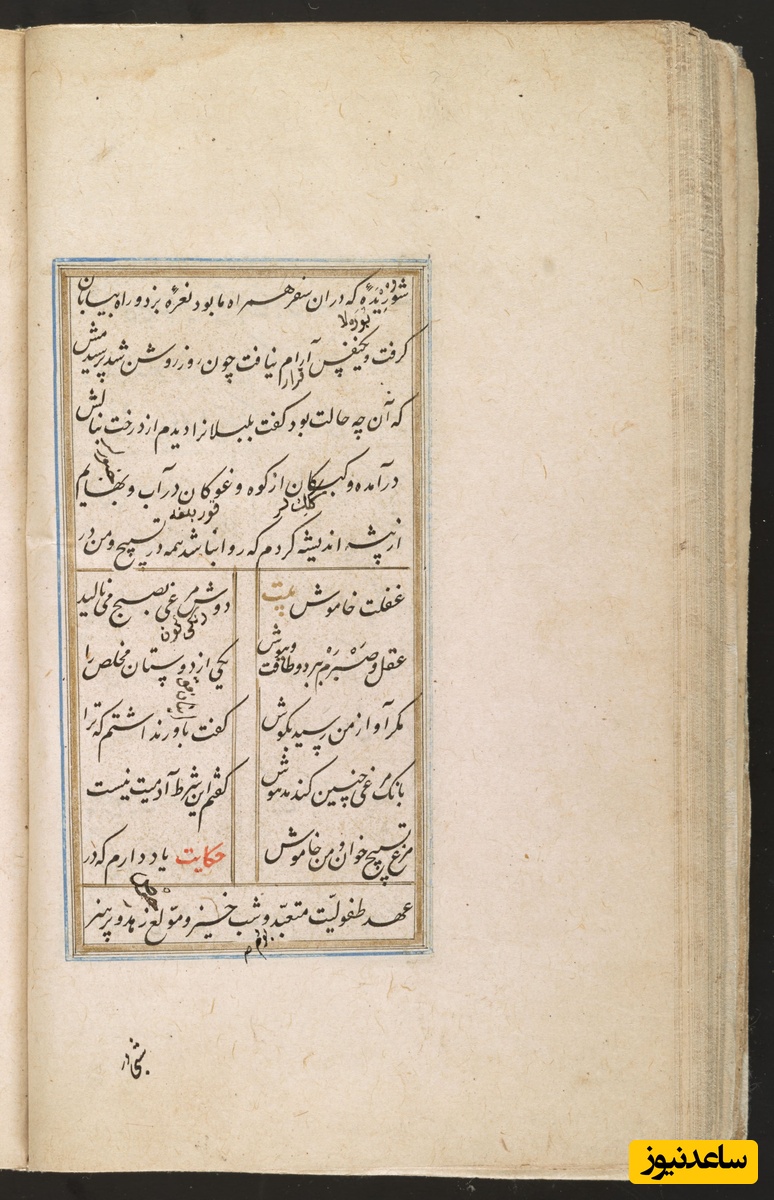 شوریدهٔ که دران سفر همراه ما بود نعرهٔ بزد و راه بیابان
گرفت و یکنفس آرام نیافت چون روز روشن شد پرسیدمش
قرار
که آن چه حالت بود گفت بلبلانرا دیدم از درخت بنالش
درآمده و کبکان از کوه و غوکان در آب و بهایم
از بیشه اندیشه کردم که روا نباشد همه در تسبیح و من در
غفلت خاموش بیت دوش مرغی بصبح می‌نالید
عقل و صبرم ببرد و طاقت و هوش یکی از دوستان مخلص را
مگر آواز من رسید بگوش گفت باور نداشتم که ترا
بانگ مرغی چنین کند مدهوش گفتم این شرط آدمیت نیست
مرغ تسبیح خوان و من خاموش حکایت یاد دارم که در
عهد طفولیّت متعبّد و شب خیز و مولع زهد و پرهیز
بودم
شبی در
ساعدنیوز